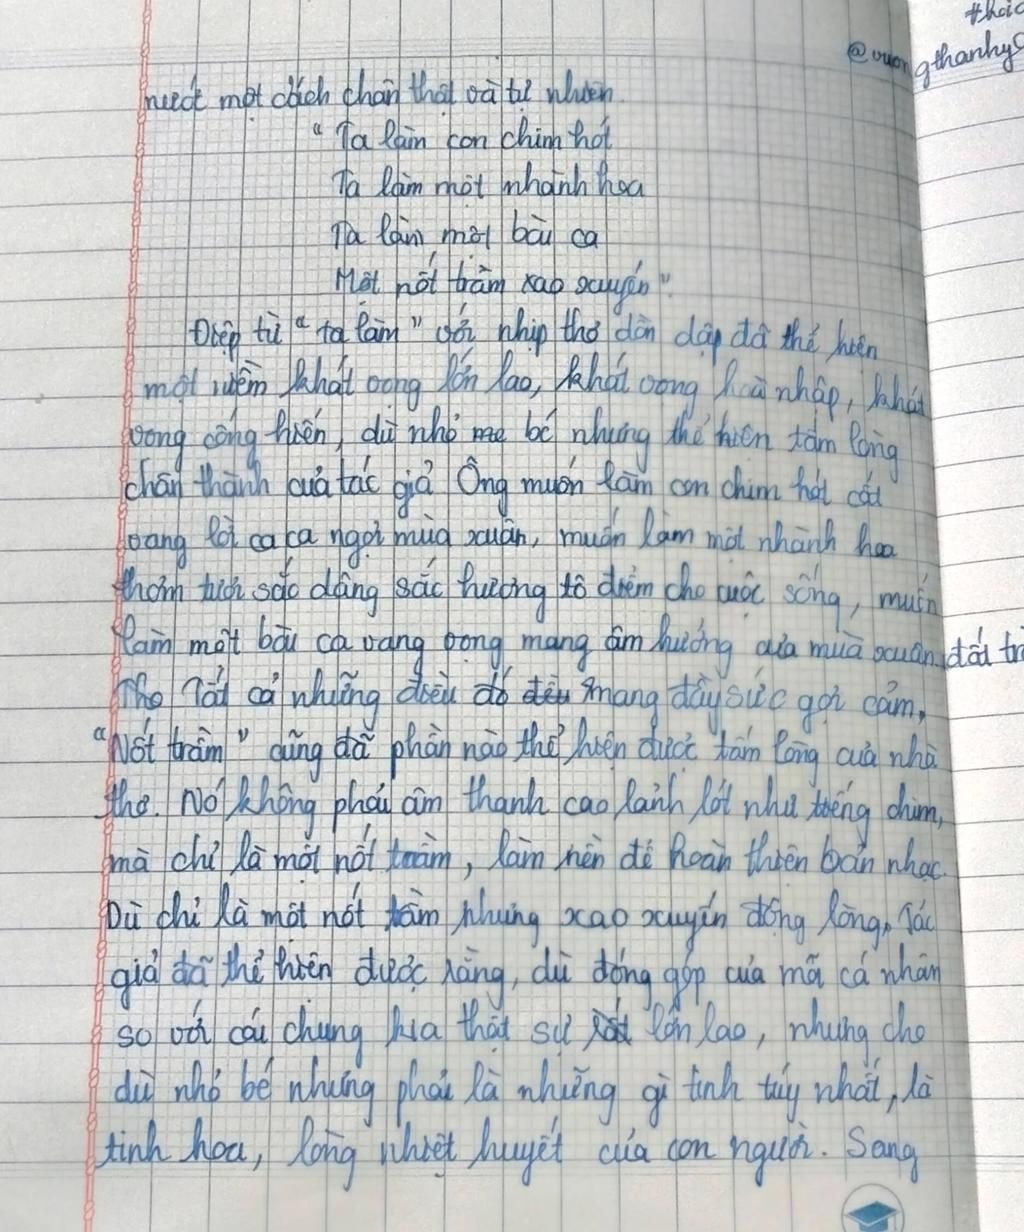 thái
@vuongthanhyc
nước một cách chân thật và tự nhiên.
“Ta làm con chim hót
Ta làm một nhành hoa
Ta làm một bài ca
Một nốt trầm xao xuyến”.
Điệp từ “ta làm” với nhịp thơ dồn dập đã thể hiện
một niềm khát vọng lớn lao, khát vọng hoà nhập, khát
vọng cống hiến, dù nhỏ bé nhưng thể hiện tấm lòng
chân thành của tác giả. Ông muốn làm con chim hót cất
vang lời ca ca ngợi mùa xuân, muốn làm một nhành hoa
thơm tươi sắc dâng sắc hương tô điểm cho cuộc sống, muốn
làm một bài ca vang vọng mang âm hưởng của mùa xuân đất tr
Thọ Tất cả những điều đó đều mang đầy sức gợi cảm,
“Nốt trầm” cũng đã phần nào thể hiện được tấm lòng của nhà
thơ. Nó không phải âm thanh cao lảnh lót như tiếng chim,
mà chỉ là một nốt trầm, làm nền để hoàn thiện bản nhạc.
Dù chỉ là một nốt trầm nhưng xao xuyến động lòng, Tác
giả đã thể hiện được rằng, dù đóng góp của mỗi cá nhân
so với cái chung kia thật sự lớn lao, nhưng cho
dù nhỏ bé nhưng phải là những gì tinh túy nhất, là
tinh hoa, lòng nhiệt huyết của con người. Song